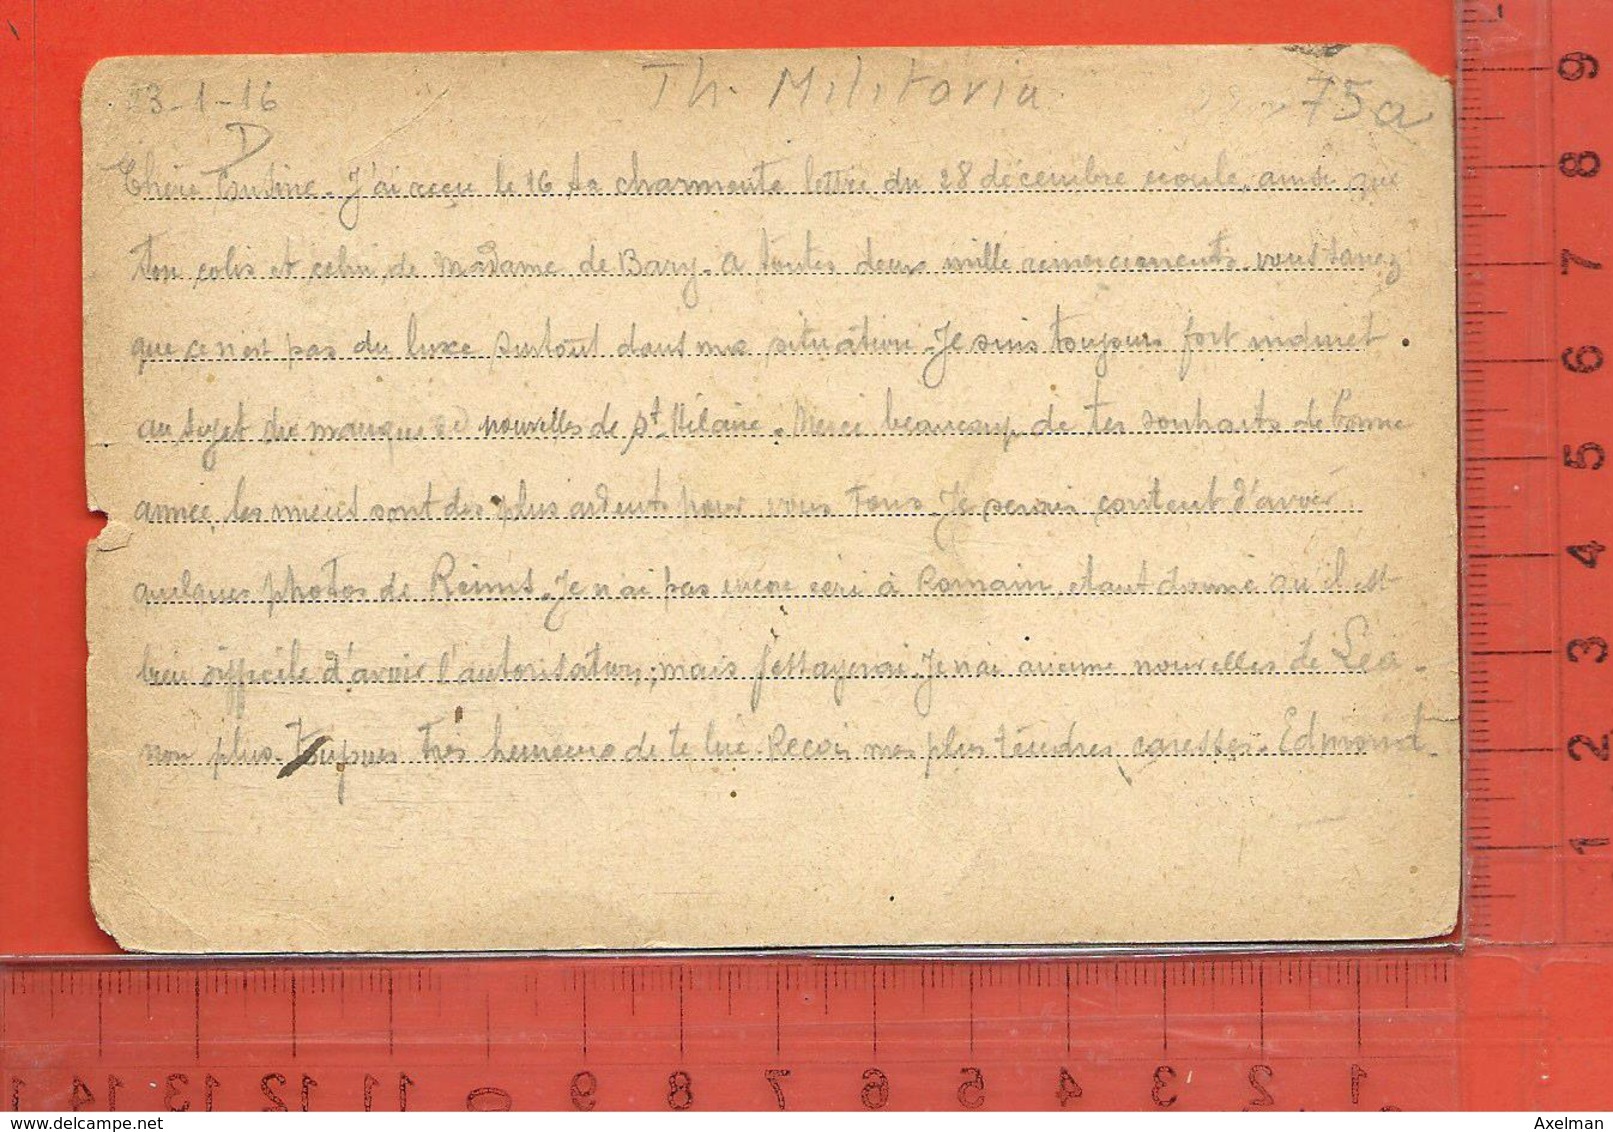 3-1-16
Th. Militaria
75a
D
Chère Cousine. J'ai reçu le 16 ta charmante lettre du 28 décembre écoulé, ainsi que
ton colis et celui de Madame de Bary. A toutes deux mille remerciements. vous savez
que ce n'est pas du luxe surtout dans ma situation. Je suis toujours fort inquiet
au sujet du manque de nouvelles de St Hilaire. Merci beaucoup de tes souhaits de bonne
année, les miens sont des plus ardents pour vous tous. Je serais content d'avoir
quelques photos de Reims. Je n'ai pas encore écri à Romain, étant donné qu'il est
bien difficile d'avoir l'autorisation; mais j'essayerai. Je n'ai aucune nouvelles de Léa
non plus. Toujours très heureux de te lire. Reçois mes plus tendres caresses. Edmond.
9
8
7
6
5
4
3
2
1
1 14 13 12 11 0 9 8 7 6 5 4 3 2 1
Axelman